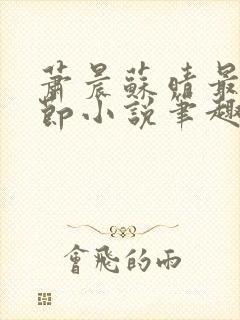 蕭晨蘇晴最
節小說筆趣
會飛的雨